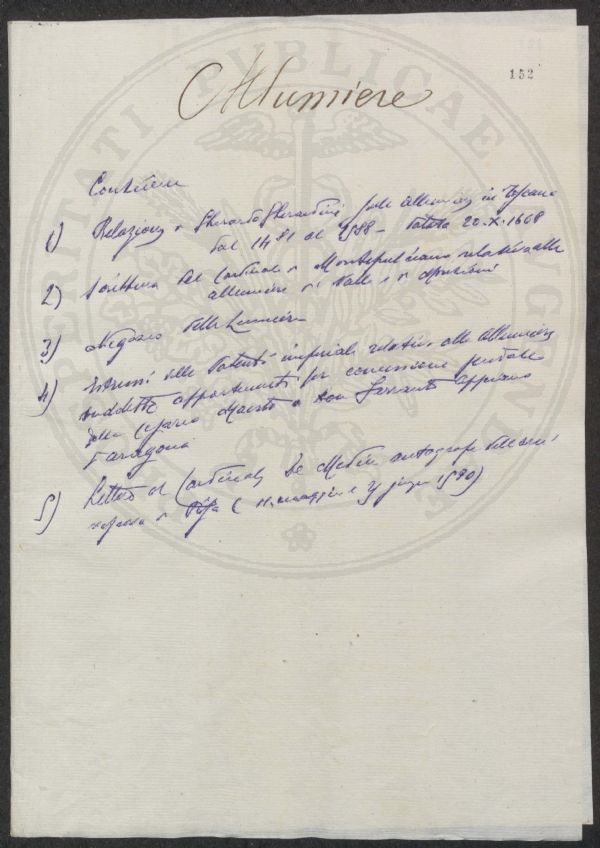 152
Allumiere
Contiene
1) Relazione di Gherardo Gherardini sulle allumiere in Toscana
dal 1481 al 1588 - datata 20.X.1608
2) Scrittura del Cardinale di Montepulciano relativa alle
allumiere di Valle e di
3) Negozio delle Lumiere
4) delle Patenti imperiali relative alle Allumiere
suddette per concessione feudale
della Cesarea Maestà a don Ferrante Appiano
d'Aragona
5) Lettere al Cardinale De Medici autografe dell'arci
vescovo di Pisa ( maggio e giugno 1590)
PUBLICAE